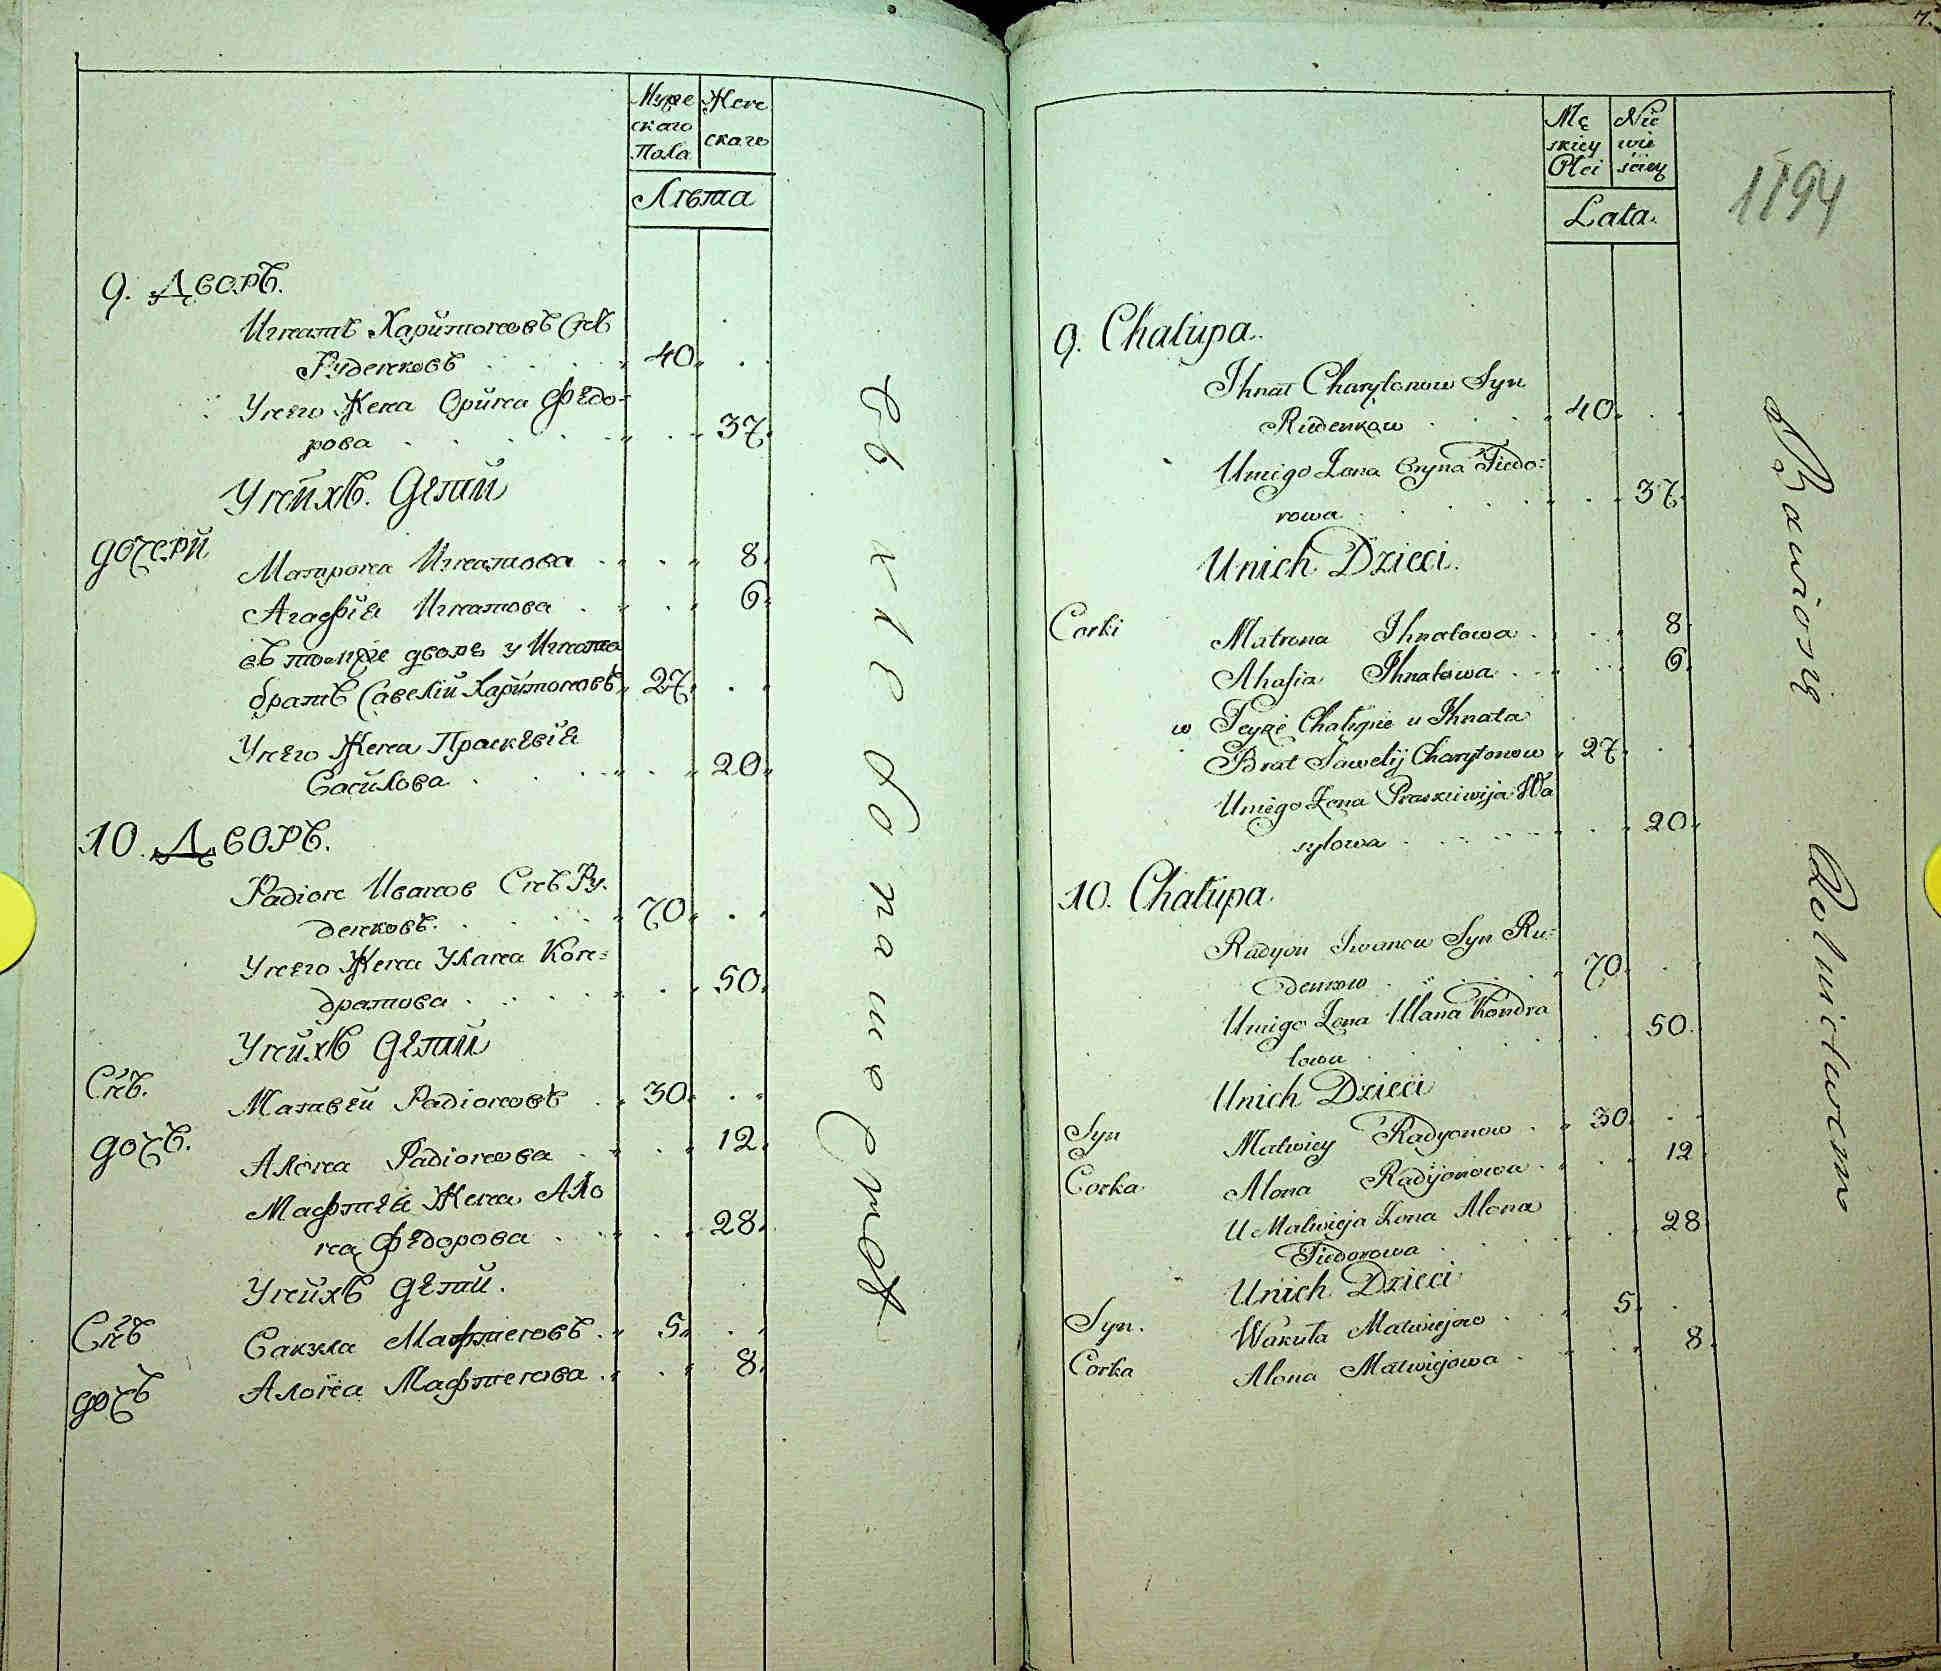 Муже Жене
скаго скаго
Пола
Лѣта
9. Дворъ.
Игнатъ Харитоновъ Снъ
Руденковъ 40
Унего Жена Орина Федо=
рова 37.
Унихъ. Дети
дочери
Матрона Игнатова 8.
Агафiя Игнатова 6.
въ томже дворе у Игната
братъ Савелiй Харитоновъ 27.
Унего Жена Прасковiя
Василова 20.
10. Дворъ.
Радiон Иванов Снъ Ру.
денковъ. 70.
Унего Жена Улана Кон=
дратова 50.
Унихъ Дети
Снъ. Матвей Радiоновъ 30.
дочъ. Алона Радiонова 12.
Жена Ало
на Федорова 28.
Унихъ дети.
Снъ Вакула 5.
дочъ Алона 8.
Хлебопашестве
7.
Mę Nie
skiey wie
Płci sciey
Lata.
1194
9. Chałupa.
Ihnat Charytonow Syn
Rudenkow 40.
Uniego Zona Oryna Fiedo=
rowa 37.
Unich Dzieci.
Corki Matrona Ihnatowa 8
Ahafia Ihnatowa 6.
w Teyże Chałupie u Ihnata
Brat Sawelij Charytonow 27.
Uniego Zona Praskiewija Wa
sylowa 20.
10. Chałupa.
Radyon Iwanow Syn Ru=
denkow 70.
Uniego Zona Ulana Kondra
towa 50.
Unich Dzieci
Syn Matwiey Radyonow 30.
Corka Alona Radyonowa 12
U Matwieja Zona Alona
Fiedorowa 28
Unich Dzieci
Syn. Wakuła Matwiejow 5.
Corka Alona Matwiejowa 8.
Rolnictwem